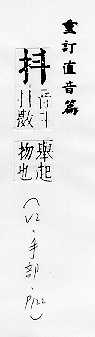 重訂直音篇
抖 音斗抖擻舉起物也
(V2·手部·